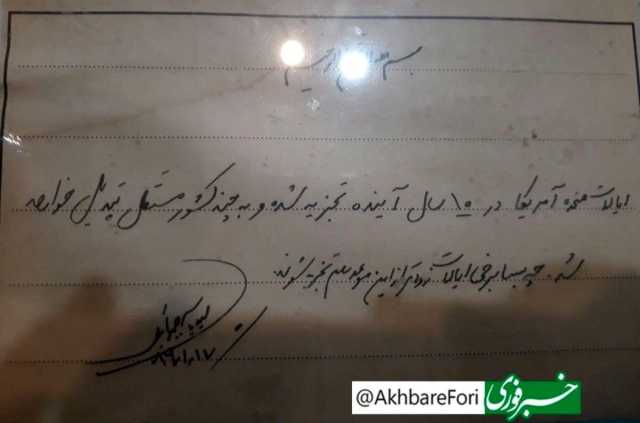 بسم الله الرحمن الرحیم
ایالات متحده آمریکا در ۱۵ سال آینده تجزیه شده و به چند کشور مستقل تبدیل خواهد
شد. چه بسا برخی ایالات زودتر از این موعد هم تجزیه شوند.
@AkhbareFori خبرفوری